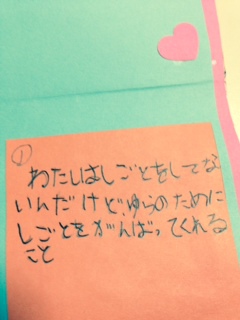 ①
わたしはしごとをしてな
いんだけど、ゆらのために
しごとをがんばってくれる
こと